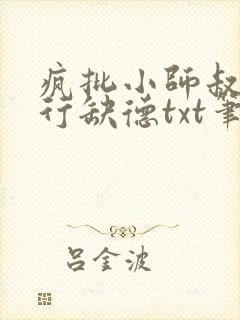 疯批小师叔
行缺德txt笔
吕金波